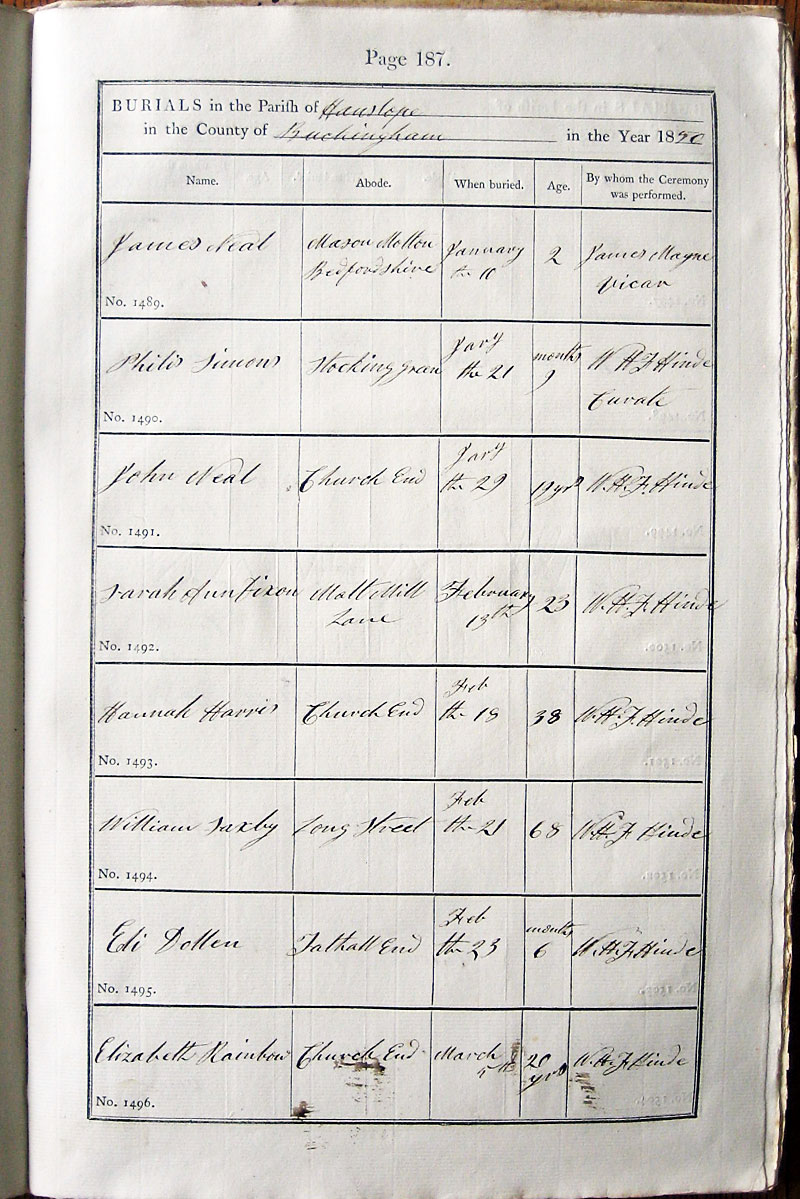 Page 187.
BURIALS in the Parish of Hanslope
in the County of Buckingham in the Year 1850
Name. Abode. When buried. Age. By whom the Ceremony was performed.
James Neal
Mason Molton
Bedfordshire
January
the 10
2
James Mayne
Vicar
No. 1489.
Philis Simons
Stocking green
Jary
the 21
months
9
W H J Hinde
Curate
No. 1490.
John Neal
Church End
Jary
the 29
19 yrs
W. H. J. Hinde
No. 1491.
Sarah Ann
Malt Mill
Lane
February
13th
23
W. H. J. Hinde
No. 1492.
Hannah Harris
Church End
Feb
the 18
38
W. H. J. Hinde
No. 1493.
William Saxby
Long Street
Feb
the 21
68
W. H. J. Hinde
No. 1494.
Eli Dollen
Tathall End
Feb
the 23
months
6
W. H. J. Hinde
No. 1495.
Elizabeth Rainbow
Church End
March
5th
20
yrs
W. H. J. Hinde
No. 1496.